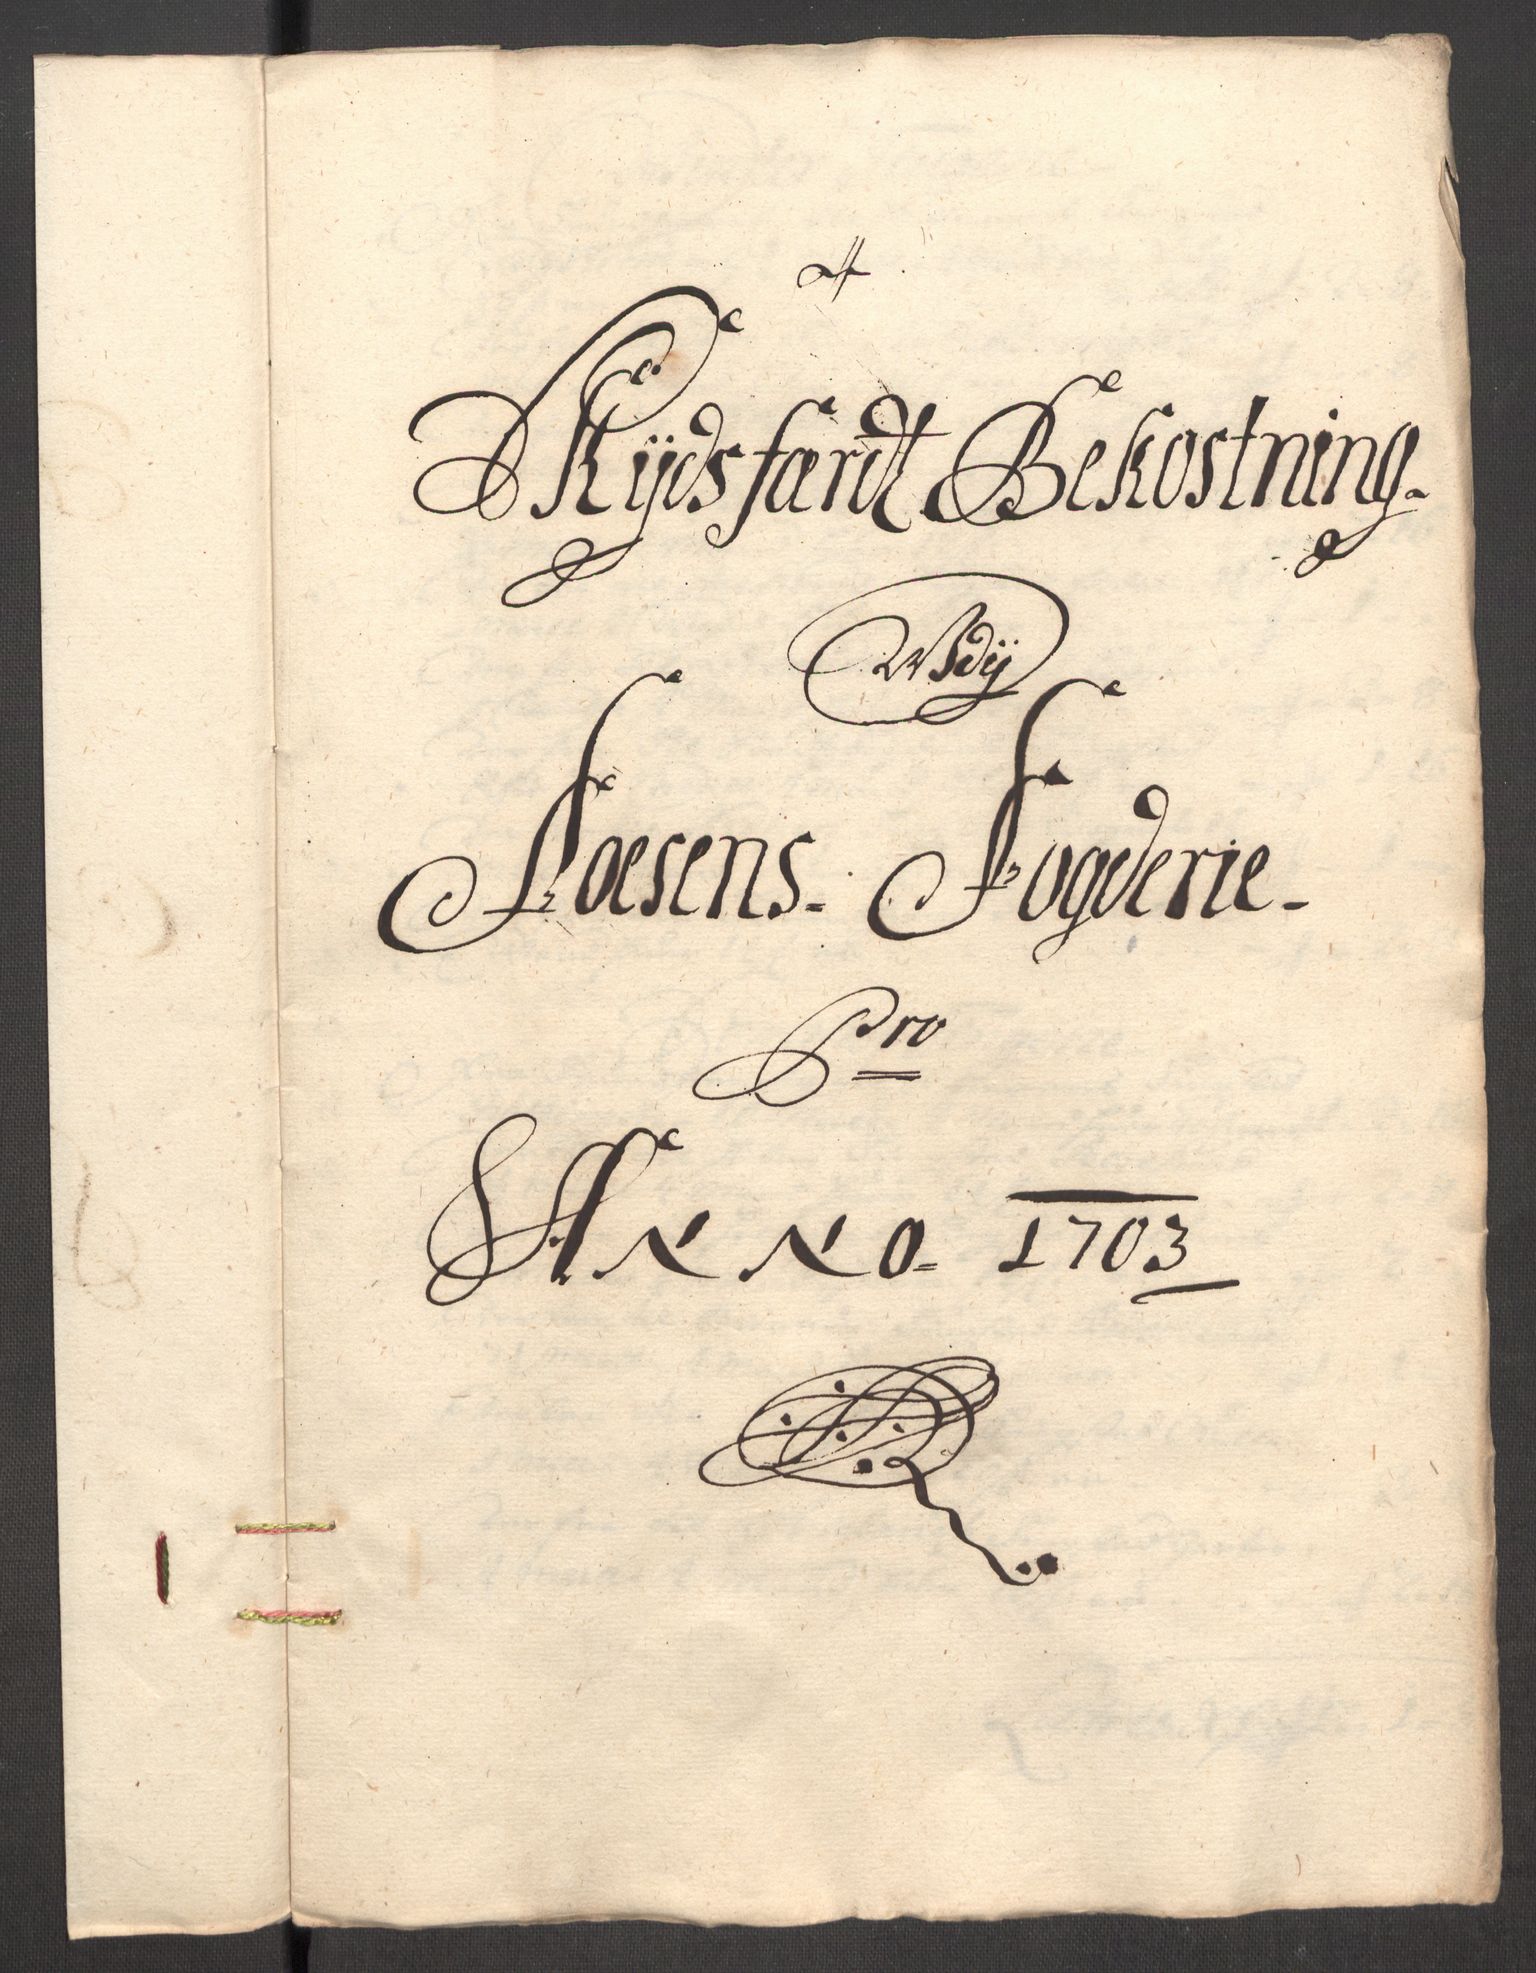 Skydsfærdt Bekostning.
Udij
Foesens. Fogderie.
Pro
Anno. 1703